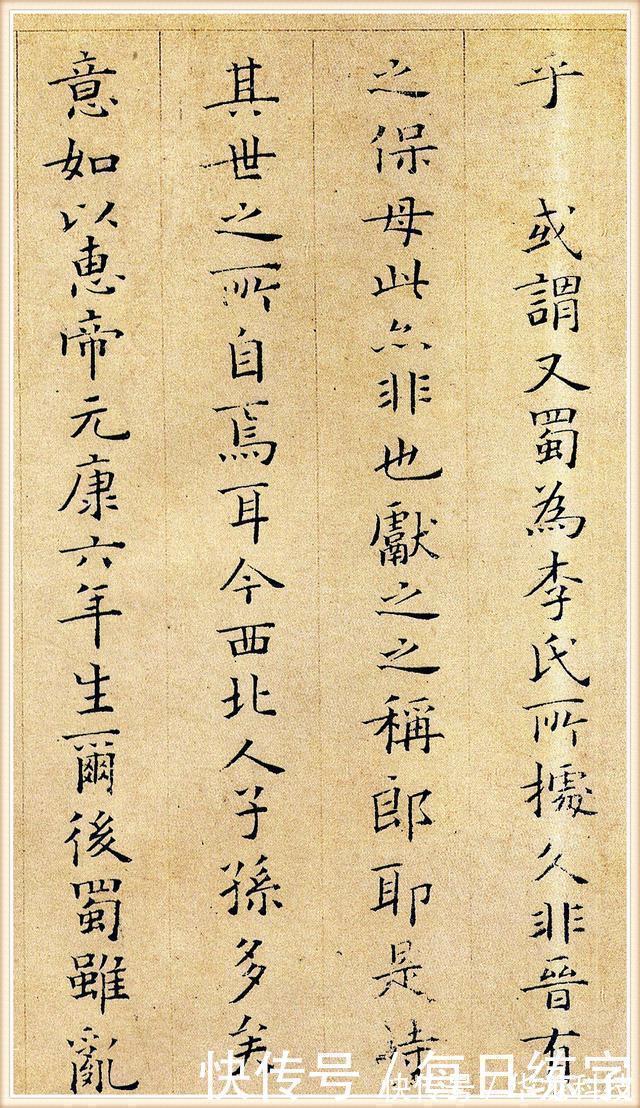 乎 或謂又蜀為李氏所據久非晉有
之保母此亦非也獻之之稱郎耶是
其世之所自焉耳今西北人子孫多
意如以惠帝元康六年生爾後蜀雖亂
快传号 / 每日练字